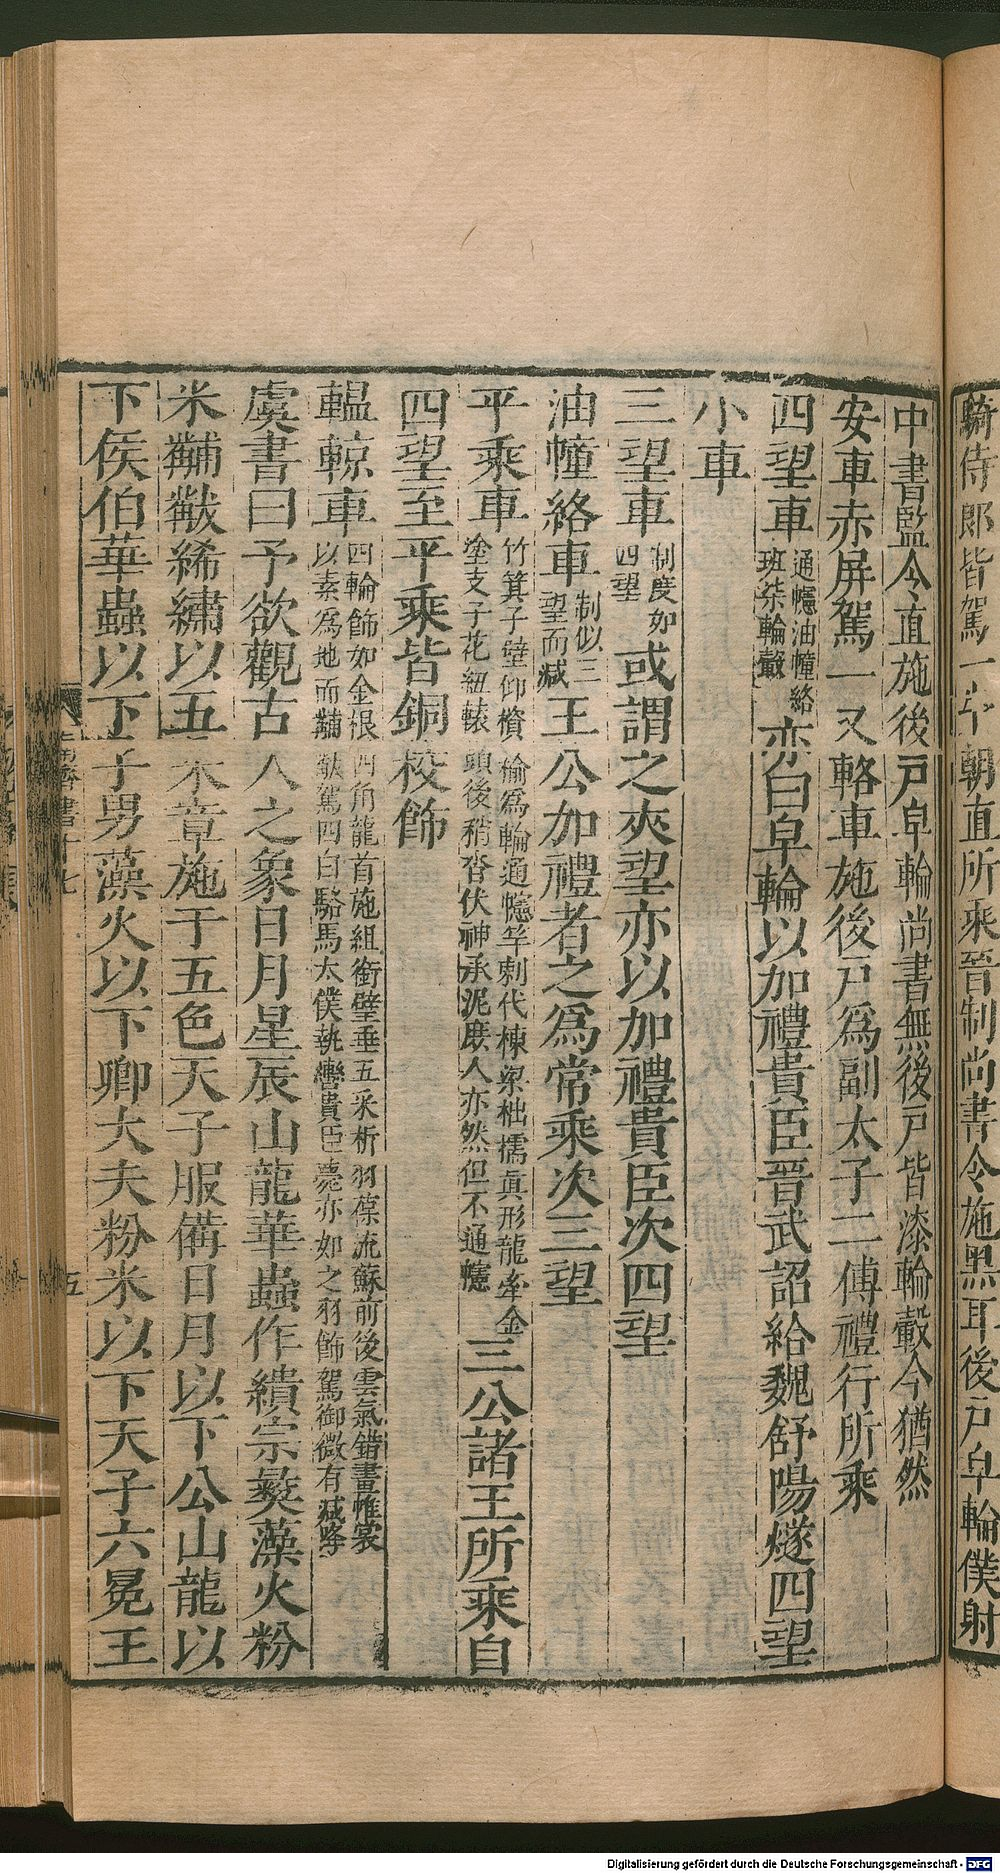 騎侍郎皆駕一牛朝直所乘晉制尚書令施黑耳後戸皁輪僕射
中書監令直施後戸皁輪尚書無後戸皆漆輪轂今猶然
安車赤屏駕一又軺車施後戸爲副太子二傅禮行所乘
四望車通幰油幢絡班柒輪轂亦曰皁輪以加禮貴臣晉武詔給魏舒陽燧四望
小車
三望車制度如四望或謂之夾望亦以加禮貴臣次四望
油幢絡車制似三望而减王公加禮者之爲常乘次三望
平乘車竹箕子壁仰櫕榆爲輪通幰竿刺代棟梁柮檽眞形龍牽金塗支子花紐轅頭後梢沓伏神承泥庶人亦然但不通幰三公諸王所乘自
四望至平乘皆銅校飾
轀輬車四輪飾如金根四角龍首施組銜璧垂五采析羽葆流蘇前後雲氣錯畫帷裳以素爲地而黼黻駕四白駱馬太僕執轡貴臣薨亦如之羽飾駕御微有减降
虞書曰予欲觀古人之象日月星辰山龍華蟲作繢宗彝藻火粉
米黼黻絺繡以五采章施于五色天子服備日月以下公山龍以
下侯伯華蟲以下子男藻火以下卿大夫粉米以下天子六冕王
南齊書十七
五
Digitalisierung gefördert durch die Deutsche Forschungsgemeinschaft - DFG